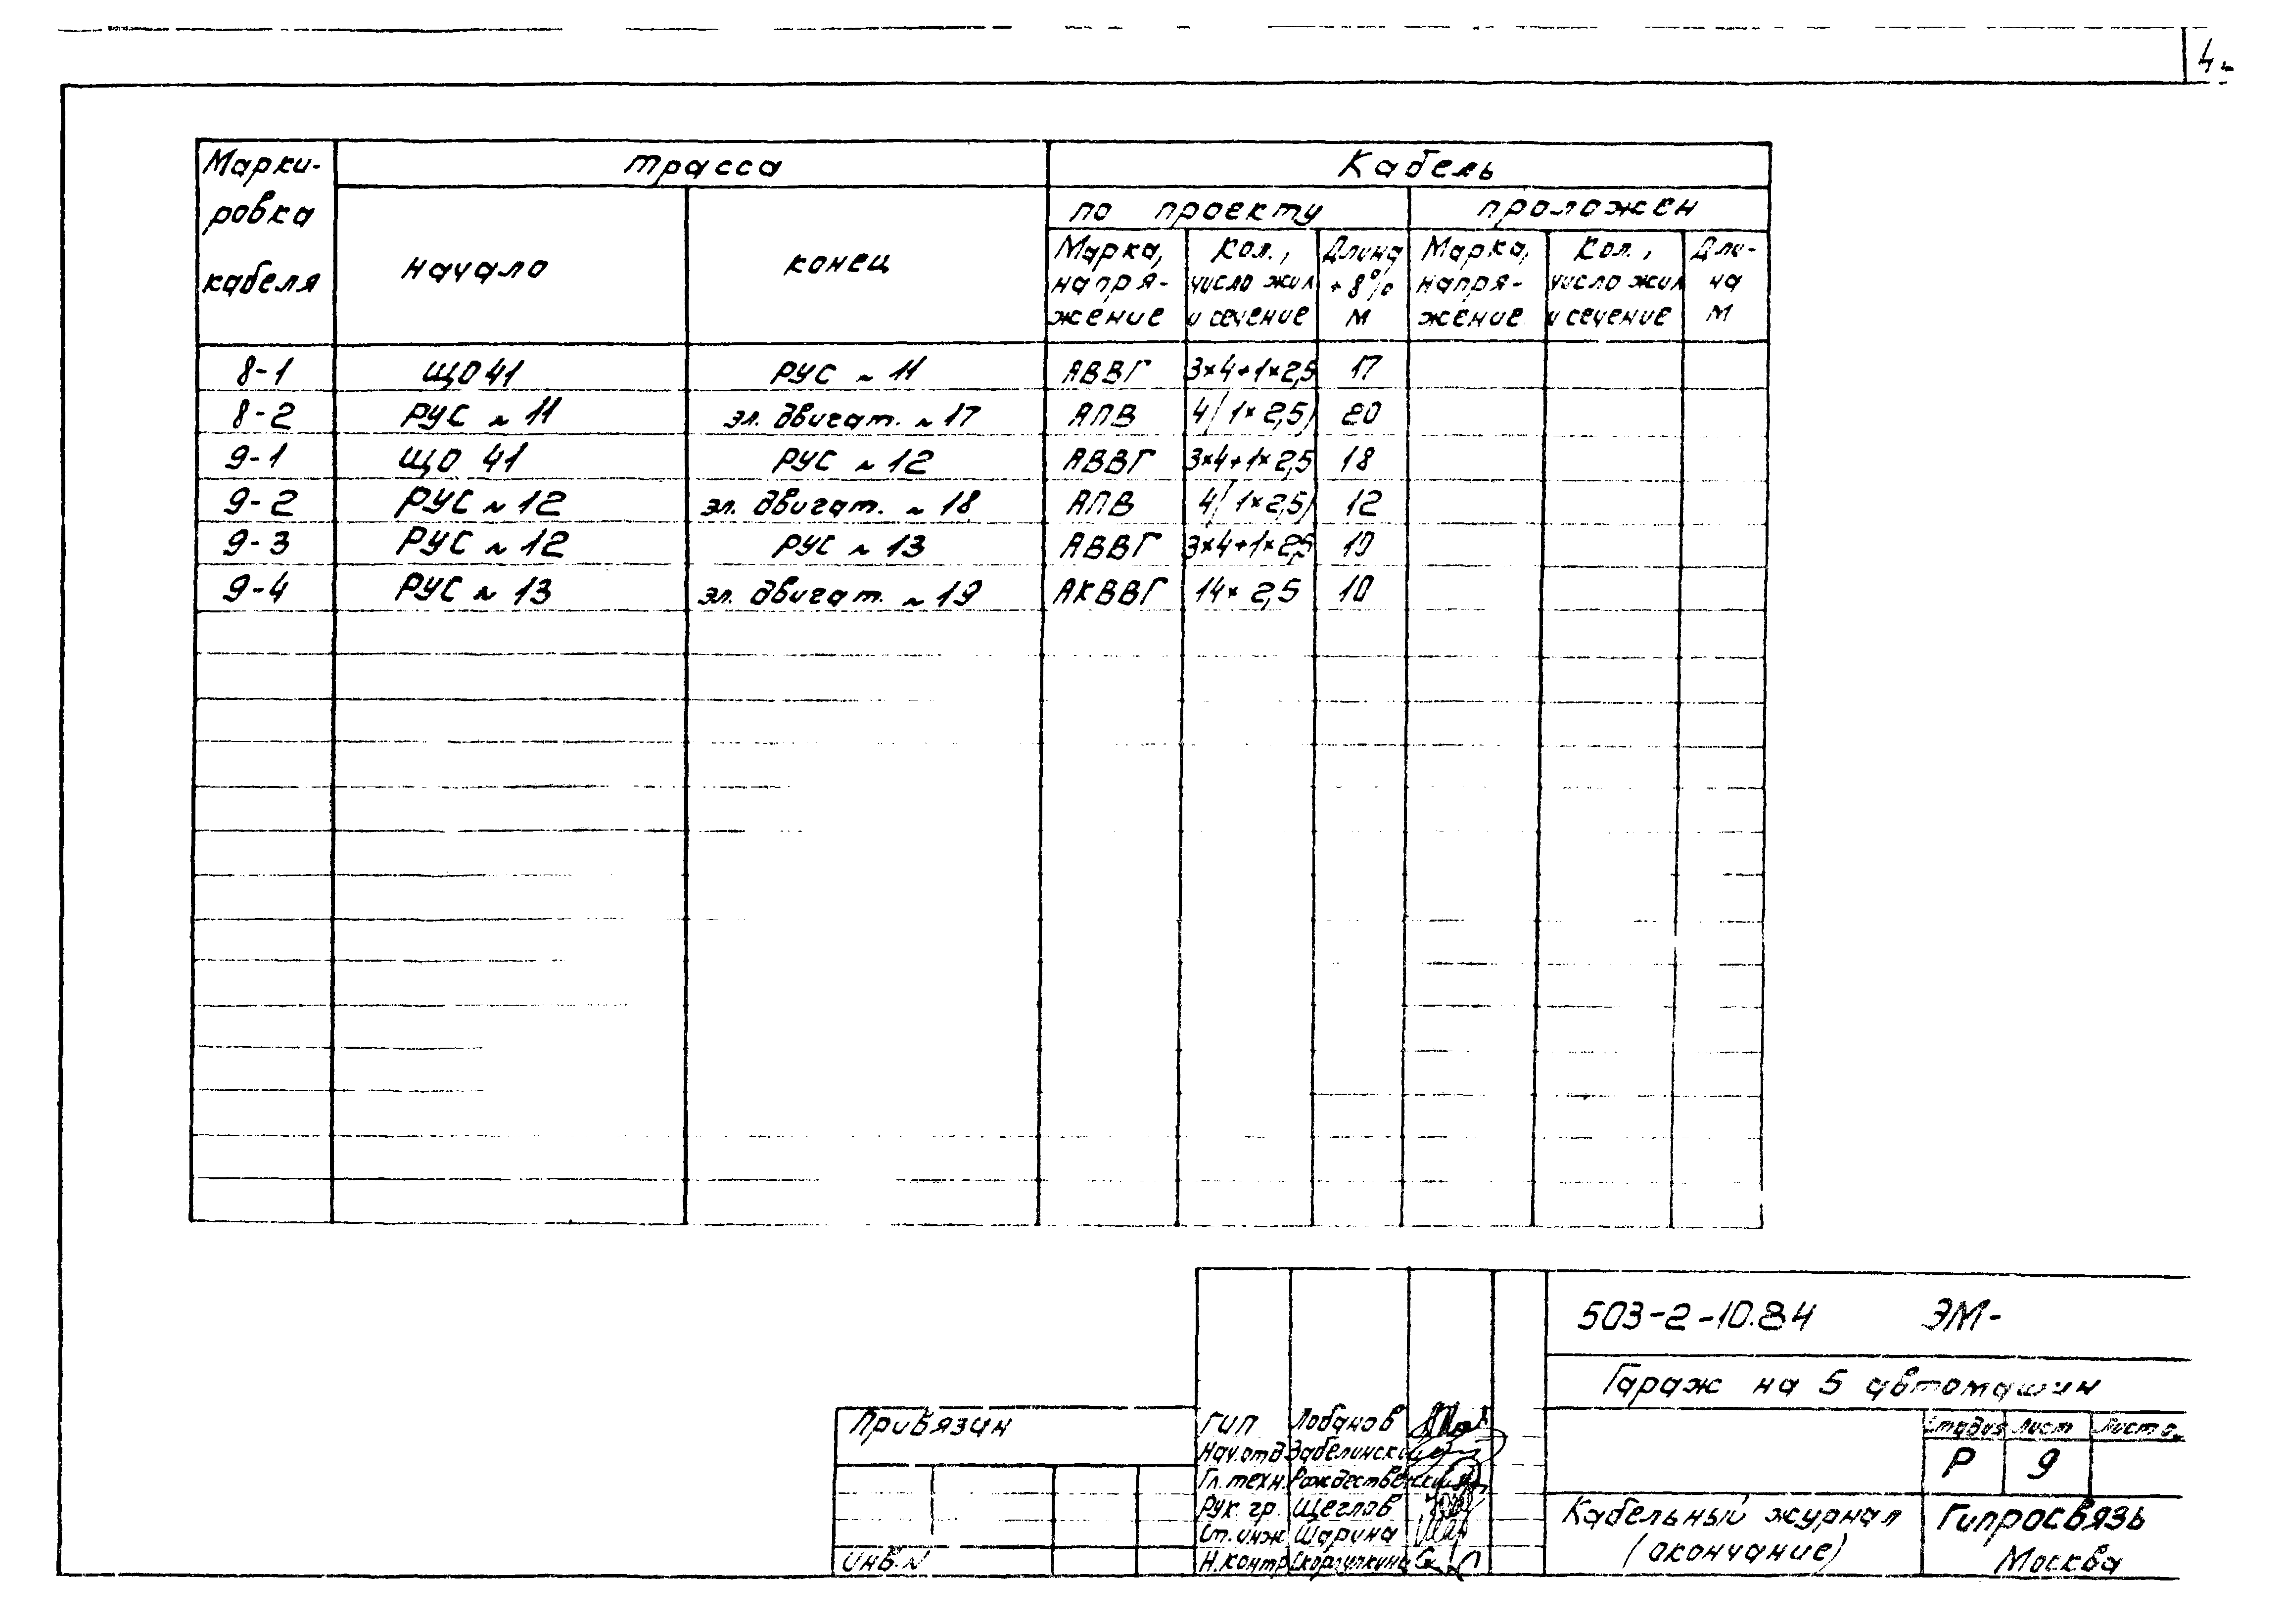 4-
Марки-
ровка
кабеля
трасса
Кабель
начало
конец
по проекту
проложен
Марка,
напря-
жение
Кол.,
число жил
и сечение
Длина
+8%
м
Марка,
напря-
жение
Кол.,
число жил
и сечение
Дли-
на
м
8-1 ЩО 41 РУС ~ 11 АВВГ 3×4+1×2,5 17
8-2 РУС ~ 11 эл. двигат. ~ 17 АПВ 4(1×2,5) 20
9-1 ЩО 41 РУС ~ 12 АВВГ 3×4+1×2,5 18
9-2 РУС ~ 12 эл. двигат. ~ 18 АПВ 4(1×2,5) 12
9-3 РУС ~ 12 РУС ~ 13 АВВГ 3×4+1×2,5 19
9-4 РУС ~ 13 эл. двигат. ~ 19 АКВВГ 14×2,5 10
503-2-10.84 ЭМ-
Гараж на 5 автомашин
Привязан
Инв. N
ГИП Лобанов
Нач.отд Забелинский
Гл.техн. Рождественский
Рук. гр. Щеглов
Ст.инж Шарина
Н.контр
Стадия Лист Листо
Р 9
Кабельный журнал
(окончание)
Гипросвязь
Москва